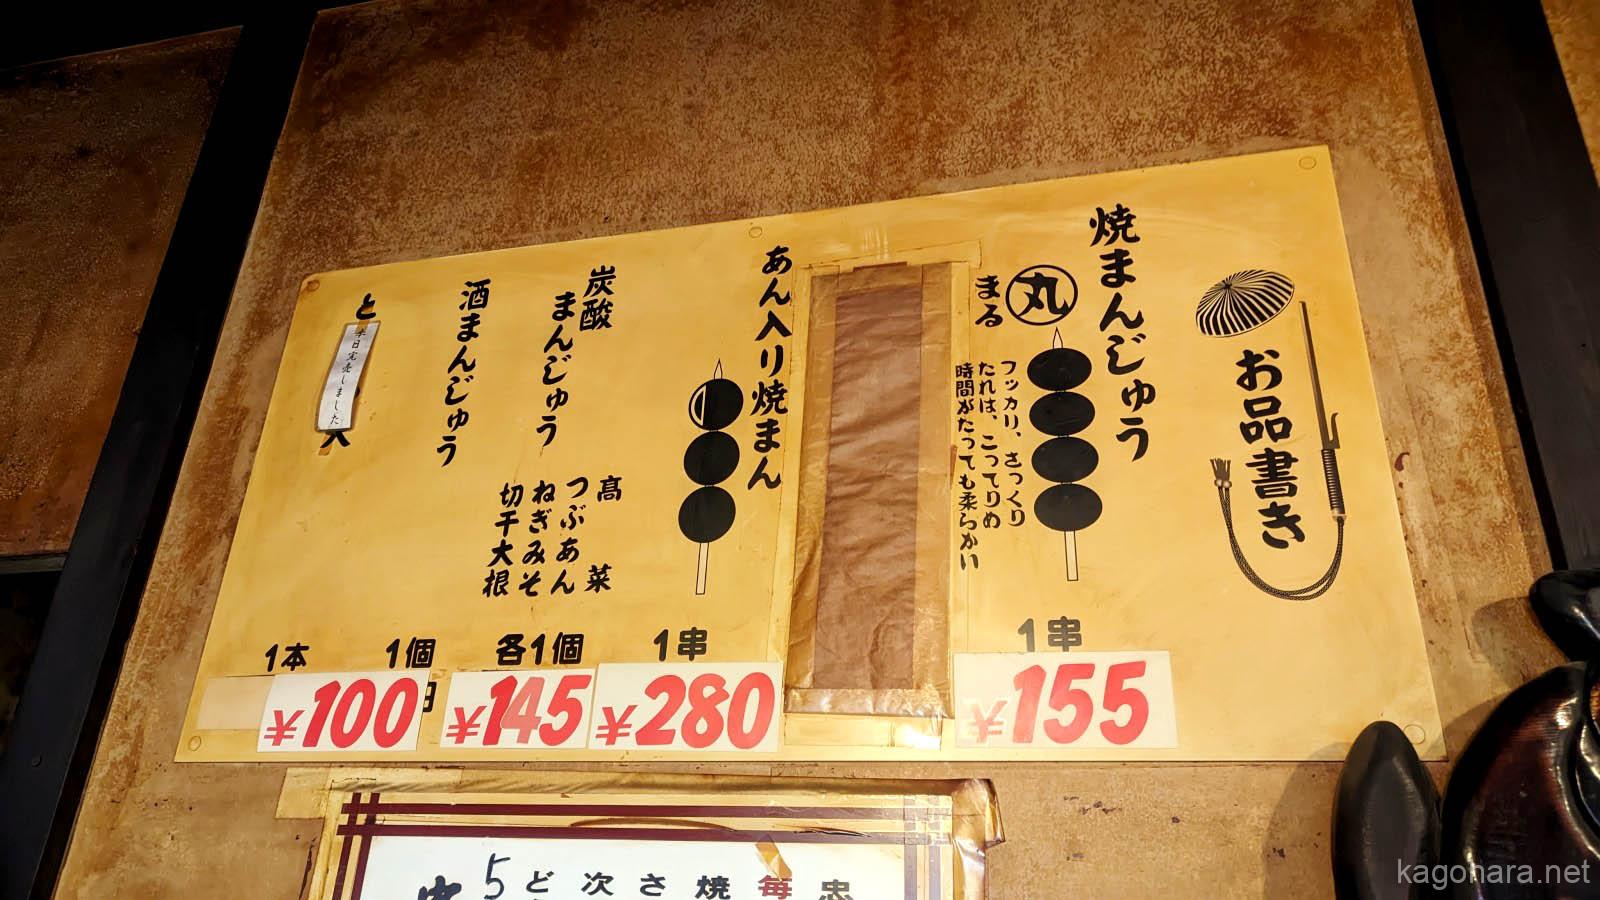 お品書き
焼まんじゅう
丸
まる
フッカリ、さっくり
たれは、こってりめ
時間がたっても柔らかい
1串
¥155
あん入り焼まん
1串
¥280
炭酸
まんじゅう
高菜
つぶあん
ねぎみそ
切干大根
各1個
¥145
酒まんじゅう
1個
¥100
と
本日完売しました
1本
忠
毎
焼
さ
次
ど
5
kagohara.net